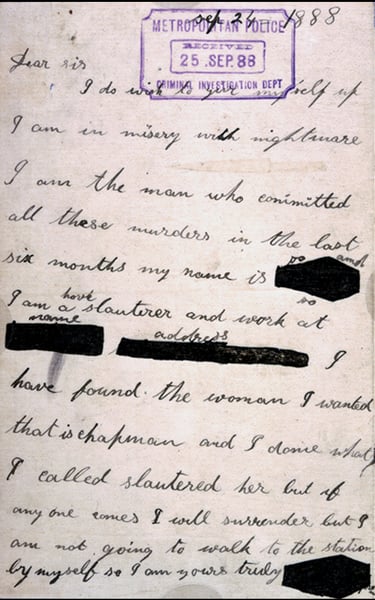 sep 24 1888
METROPOLITAN POLICE
RECEIVED
25 .SEP.88
CRIMINAL INVESTIGATION DEPT
Dear sir
I do wish to give myself up
I am in misery with nightmare
I am the man who committed
all these murders in the last
six months my name is so and
so
I am a horse slauterer and work at
name address I
have found the woman I wanted
that is chapman and I done what
I called slautered her but if
any one comes I will surrender but I
am not going to walk to the station
by myself so I am yours truly